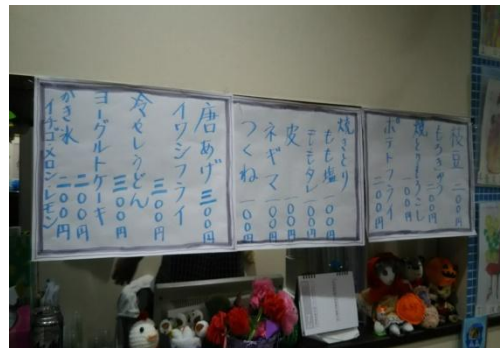 枝豆 二〇〇円
もろきゅう 二〇〇円
焼とうもろこし 一〇〇円
ポテトフライ 一〇〇円
焼きとり
もも塩 一〇〇円
ももタレ 一〇〇円
皮 一〇〇円
ネギマ 一〇〇円
つくね 一〇〇円
唐あげ 三〇〇円
イワシフライ 三〇〇円
冷やしうどん 三〇〇円
ヨーグルトケーキ 二〇〇円
かき氷 二〇〇円
イチゴ・メロン・レモン